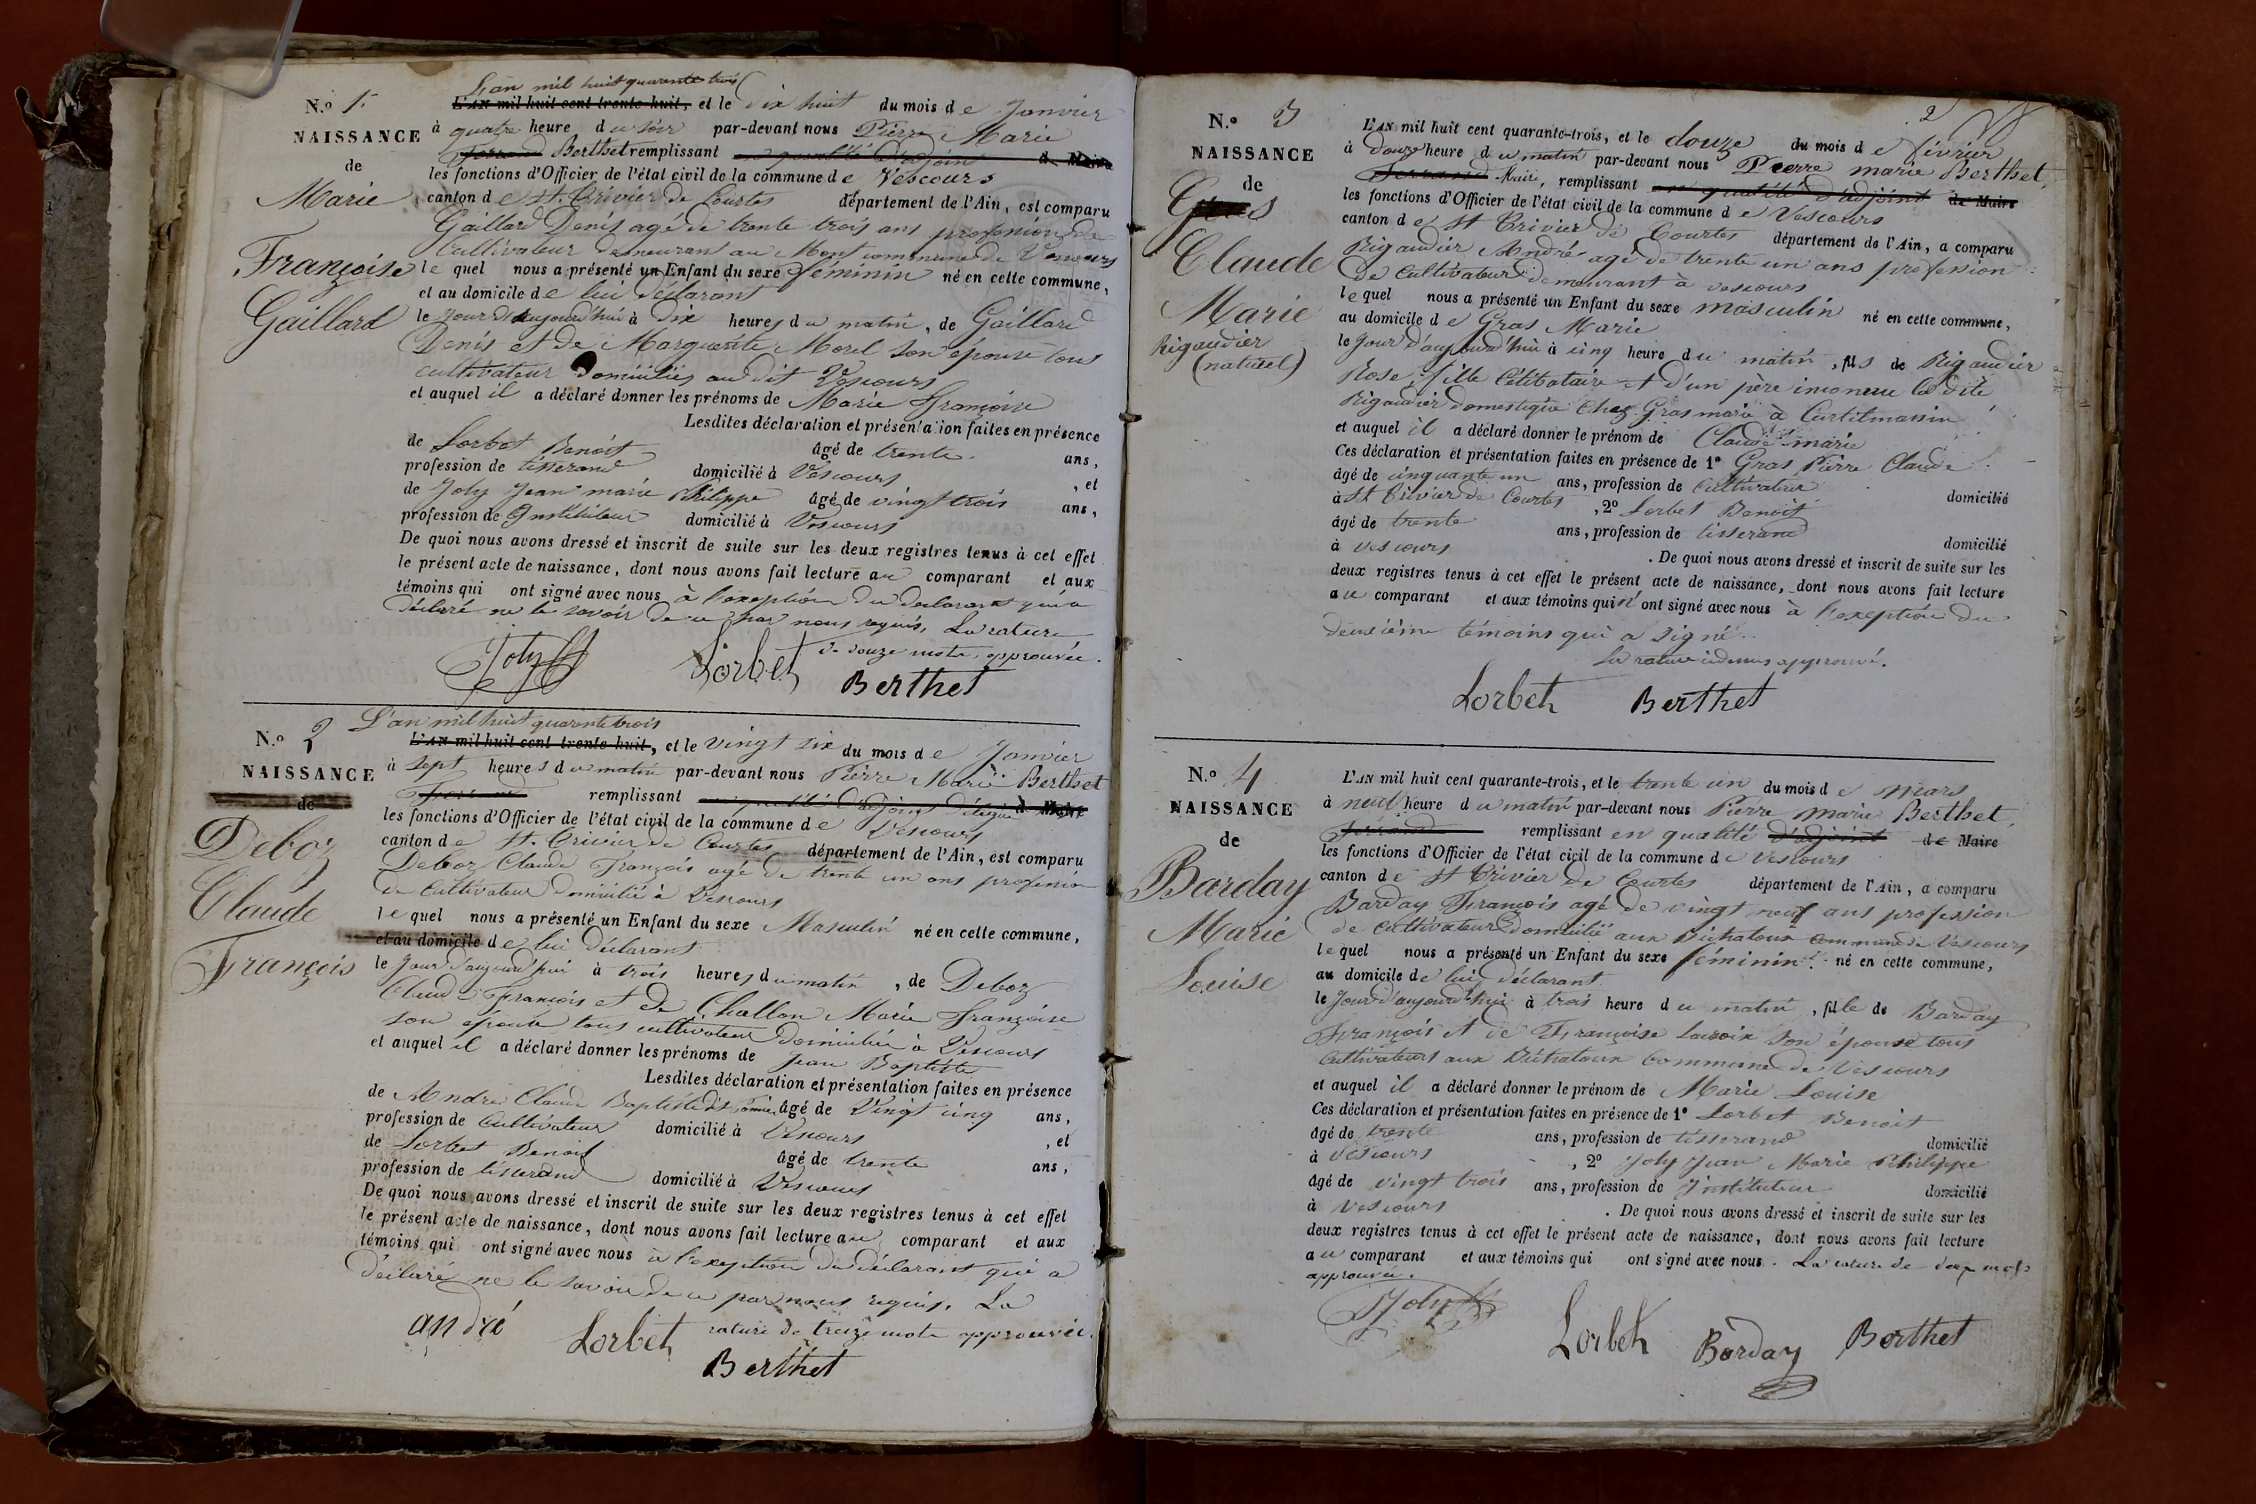 L'an mil huit quarante trois
N.o 1. L'AN mil huit cent trente-huit, et le dix huit du mois de Janvier
NAISSANCE à quatre heure du soir par-devant nous Pierre Marie
de Ferrand Berthet remplissant en qualité d'adjoint de Maire
les fonctions d'Officier de l'état civil de la commune de Vescours
Marie canton de St. Trivier de Courtes département de l'Ain, est comparu
Gaillard Denis agé de trente trois ans profession de
cultivateur demeurant au Mont commune de Vescours
Françoise le quel nous a présenté un Enfant du sexe féminin né en cette commune,
et au domicile de lui déclarant
Gaillard le Jour d'aujourd'hui à dix heures du matin, de Gaillard
Denis et de Marguerite Morel son épouse tous
cultivateur domiciliés au dit Vescours
et auquel il a déclaré donner les prénoms de Marie Françoise
Lesdites déclaration et présentation faites en présence
de Lorbet Benoit âgé de trente ans,
profession de tisserand domicilié à Vescours, et
de Joly Jean marie Philippe âgé de vingt trois ans,
profession de Instituteur domicilié à Vescours
De quoi nous avons dressé et inscrit de suite sur les deux registres tenus à cet effet
le présent acte de naissance, dont nous avons fait lecture au comparant et aux
témoins qui ont signé avec nous à l'exception du déclarant qui a
déclaré ne le savoir de ce par nous requis, La rature
de douze mots approuvée.
Joly Lorbet Berthet
L'an mil huit quarante trois
N.o 2 L'AN mil huit cent trente-huit, et le vingt six du mois de Janvier
NAISSANCE à sept heures du matin par-devant nous Pierre Marie Berthet
de Ferrand remplissant en qualité d'adjoint délégué de Maire
les fonctions d'Officier de l'état civil de la commune de Vescours
Deboz canton de St. Trivier de Courtes département de l'Ain, est comparu
Deboz Claude François agé de trente un ans profession
de cultivateur domicilié à Vescours
Claude le quel nous a présenté un Enfant du sexe Masculin né en cette commune,
et au domicile de lui déclarant
François le Jour d'aujourd'hui à trois heures du matin, de Deboz
Claude François et de Challon Marie Françoise
son épouse tous cultivateur domiciliés à Vescours
et auquel il a déclaré donner les prénoms de Jean Baptiste
Lesdites déclaration et présentation faites en présence
de André Claude Baptiste dit âgé de Vingt cinq ans,
profession de cultivateur domicilié à Vescours, et
de Lorbet Benoit âgé de trente ans,
profession de tisserand domicilié à Vescours
De quoi nous avons dressé et inscrit de suite sur les deux registres tenus à cet effet
le présent acte de naissance, dont nous avons fait lecture au comparant et aux
témoins qui ont signé avec nous à l'exception du déclarant qui a
déclaré ne le savoir de ce par nous requis. La
rature de treize mots approuvée.
andré Lorbet
Berthet
2
N.o 3 L'AN mil huit cent quarante-trois, et le douze du mois de février
NAISSANCE à douze heure du matin par-devant nous Pierre marie Berthet,
de Ferrand Maire, remplissant en qualité d'adjoint de Maire
les fonctions d'Officier de l'état civil de la commune de Vescours
Gras canton de St Trivier de Courtes département de l'Ain, a comparu
Rigaudier André agé de trente un ans profession
Claude de cultivateur demeurant à vescours
le quel nous a présenté un Enfant du sexe masculin né en cette commune,
Marie au domicile de Gras Marie
Rigaudier le Jour d'aujourd'hui à cinq heure du matin, fils de Rigaudier
(naturel) Rose, fille Célibataire et d'un père inconnu la dite
Rigaudier domestique chez Gras marie à Curtitmassin
et auquel il a déclaré donner le prénom de Claude marie
Ces déclaration et présentation faites en présence de 1º Gras Pierre Claude
âgé de cinquante un ans, profession de Cultivateur domicilié
à St Trivier de Courtes, 2º Lorbet Benoit
âgé de trente ans, profession de tisserand domicilié
à vescours. De quoi nous avons dressé et inscrit de suite sur les
deux registres tenus à cet effet le présent acte de naissance, dont nous avons fait lecture
au comparant et aux témoins qui n'ont signé avec nous à l'exeption du
deuxième témoins qui a signé.
La rature ci dessus approuvé.
Lorbet Berthet
N.o 4 L'AN mil huit cent quarante-trois, et le trente un du mois de mars
NAISSANCE à neuf heure du matin par-devant nous Pierre marie Berthet,
de Ferrand remplissant en qualité d'adjoint de Maire
les fonctions d'Officier de l'état civil de la commune de Vescours
Barday canton de St Trivier de Courtes département de l'Ain, a comparu
Barday François agé de vingt neuf ans profession
Marie de cultivateur domicilié aux commune de Vescours
le quel nous a présenté un Enfant du sexe féminin né en cette commune,
Louise au domicile de lui déclarant
le Jour d'aujourd'hui à trois heure du matin, fille de Barday
François et de Françoise Lacroix son épouse tous
cultivateurs aux commune de Vescours
et auquel il a déclaré donner le prénom de Marie Louise
Ces déclaration et présentation faites en présence de 1º Lorbet Benoit
âgé de trente ans, profession de tisserand domicilié
à Vescours, 2º Joly Jean Marie Philippe
âgé de vingt trois ans, profession de Instituteur domicilié
à vescours. De quoi nous avons dressé et inscrit de suite sur les
deux registres tenus à cet effet le présent acte de naissance, dont nous avons fait lecture
au comparant et aux témoins qui ont signé avec nous. La rature de deux mots
approuvée.
Joly Lorbet Barday Berthet